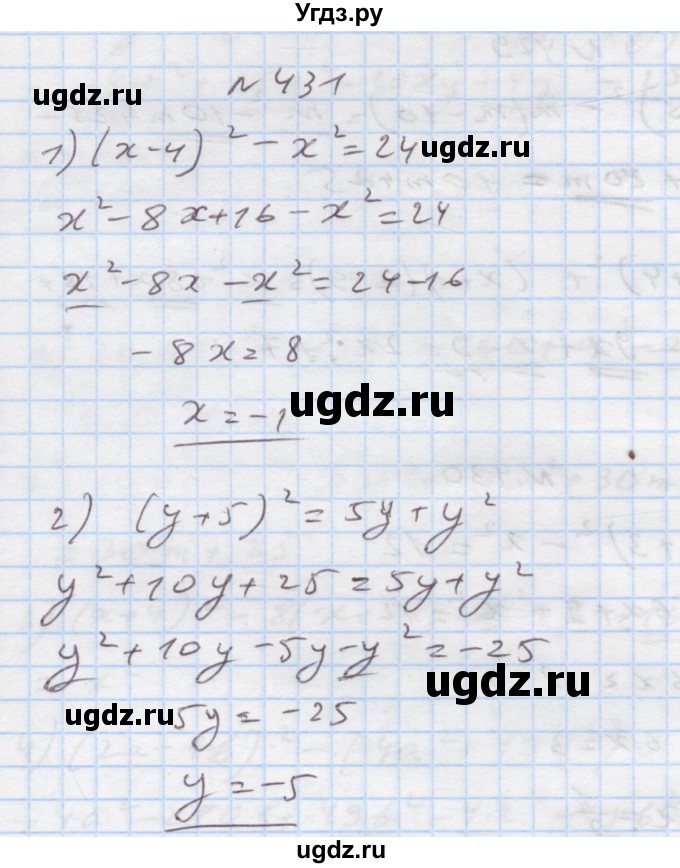 Угдз.ру
N 431
ugdz.ru
1) (x-4)² - x² = 24
ugdz.ru
x² - 8x + 16 - x² = 24
x² - 8x - x² = 24 - 16
- 8x = 8
ugdz.ru
x = -1
2) (y+5)² = 5y + y²
y² + 10y + 25 = 5y + y²
y² + 10y - 5y - y² = -25
ugdz.ru
ugdz.ru
5y = -25
y = -5
ugdz.ru